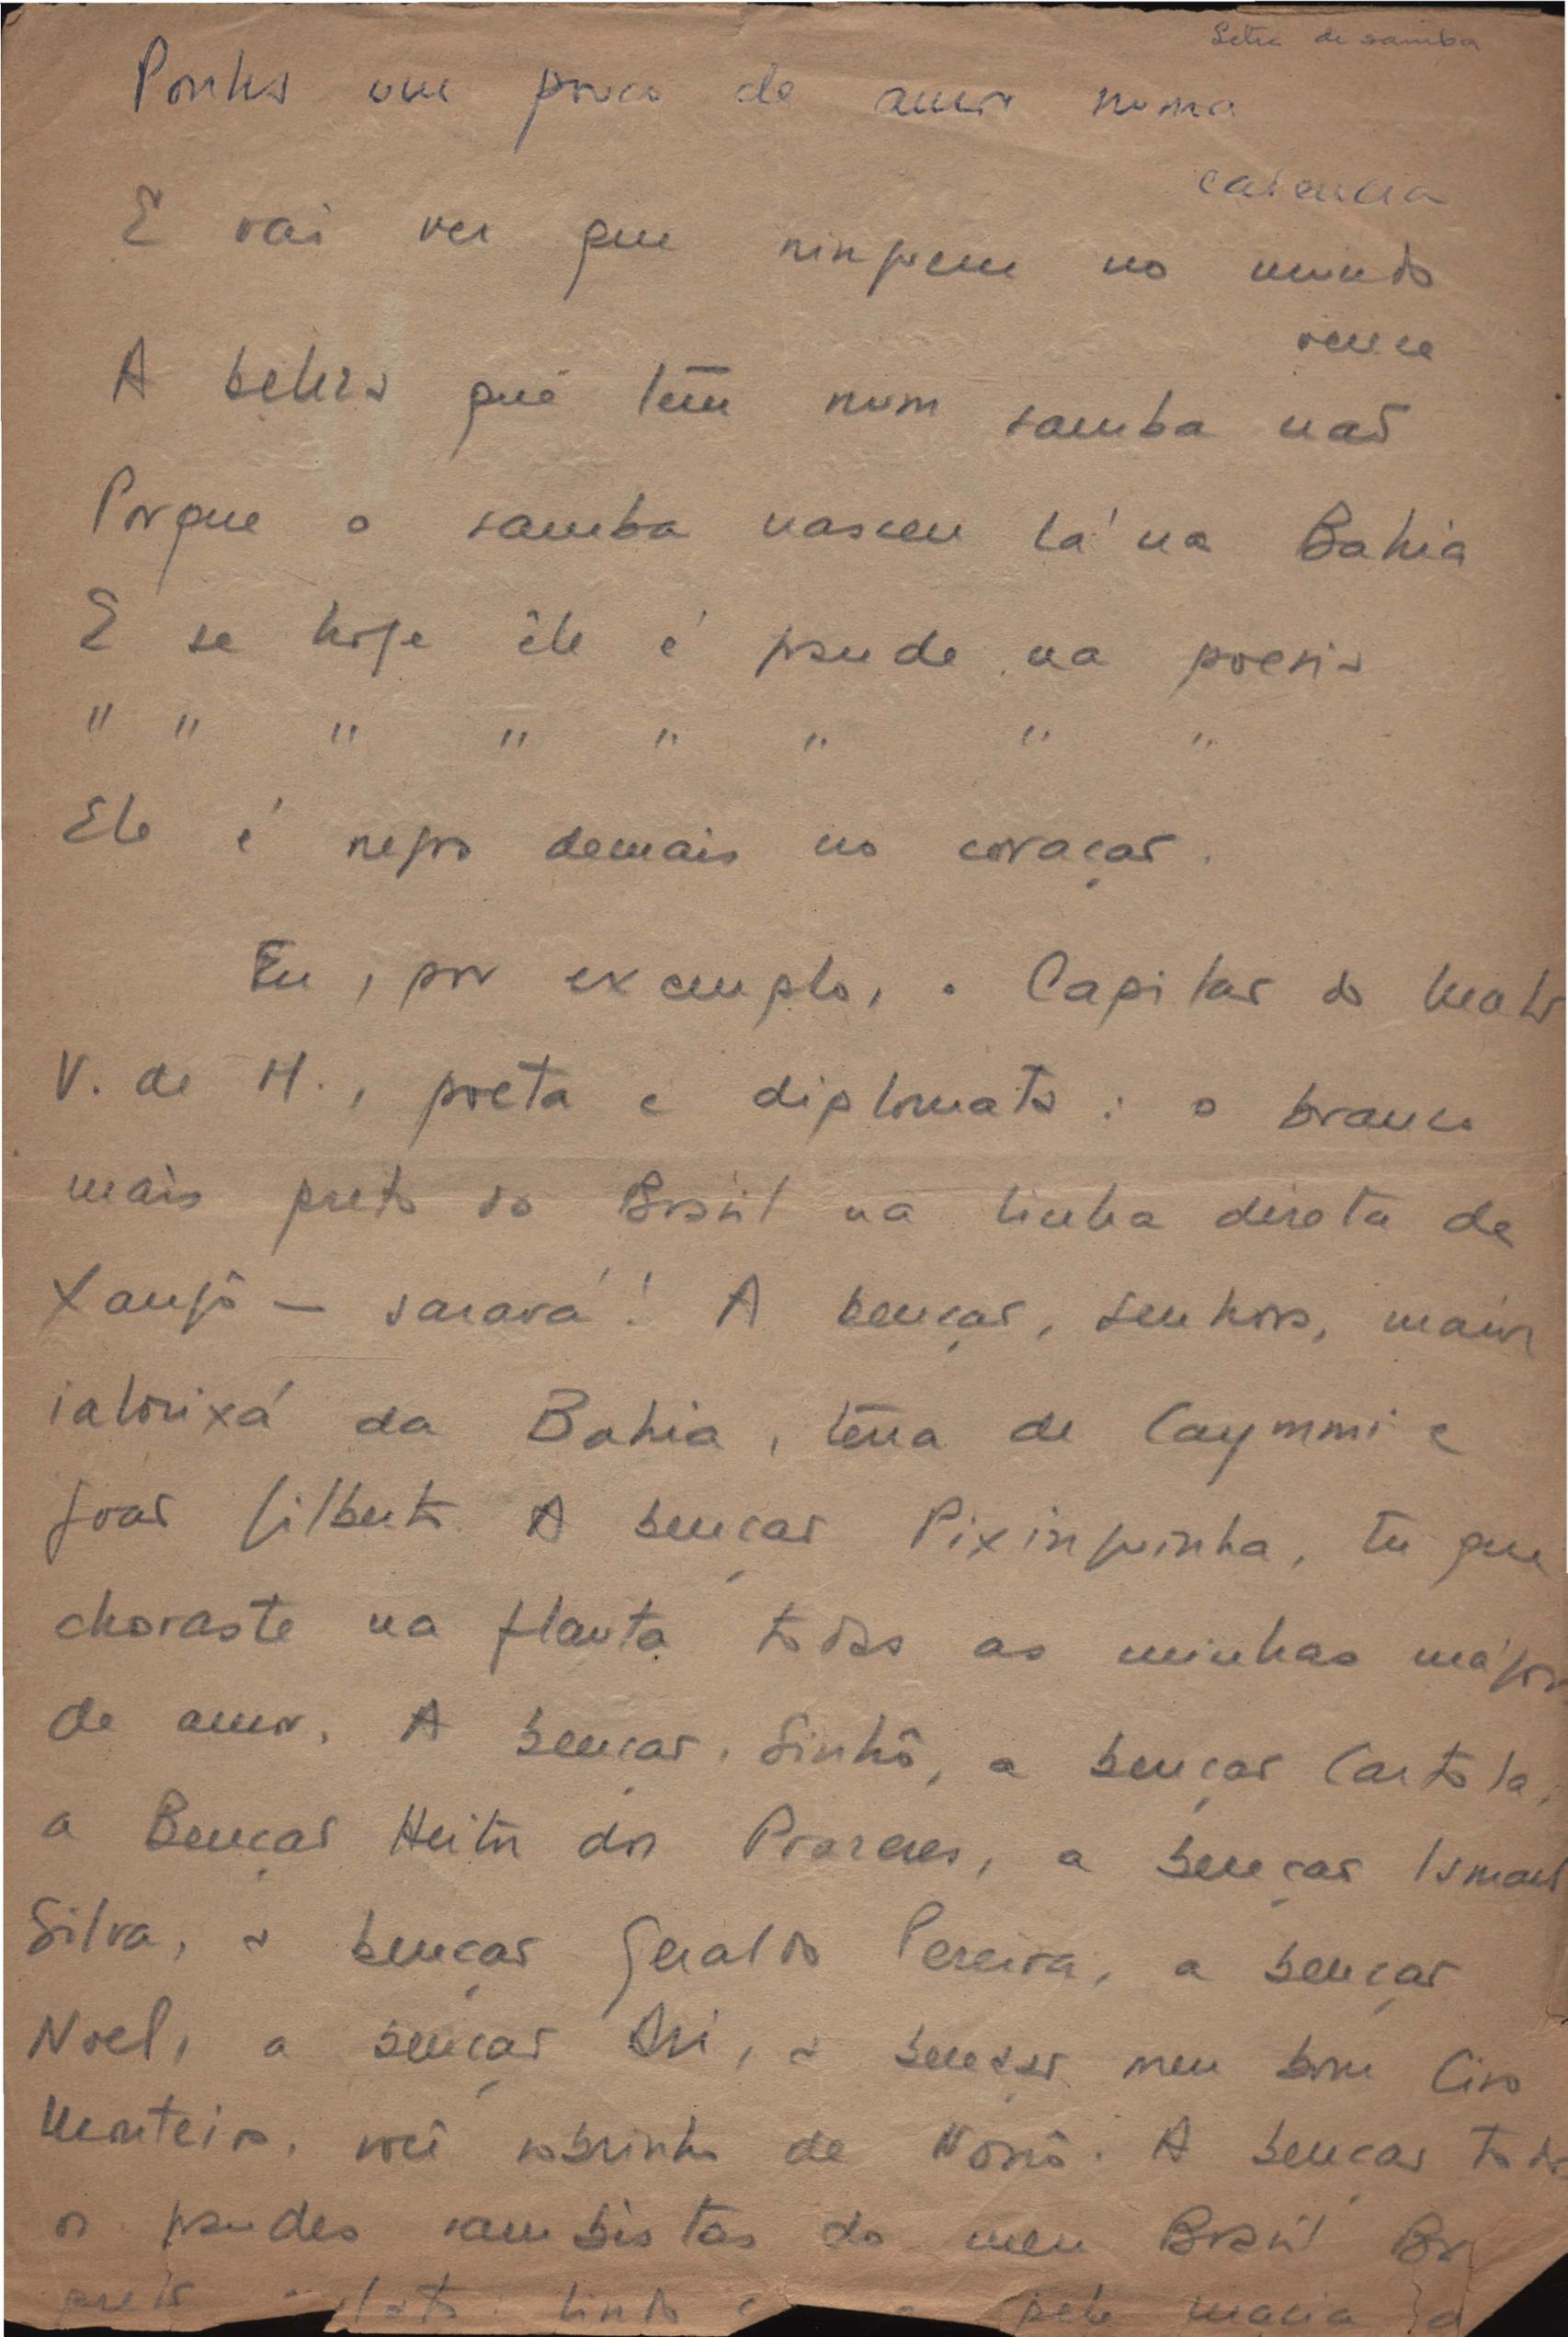 Letra de samba
Ponha um pouco de amor numa
cadencia
E vai ver que ninguem no mundo
vence
A beleza que tem num samba não
Porque o samba nasceu lá na Bahia
E se hoje êle é grande na poesia
" " " " " " " "
Ele é negro demais no coração.
Eu, por exemplo, o Capitão do Mato
V. de M., poeta e diplomata: o branco
mais preto do Brasil na linha direta de
Xangô — saravá! A benção, senhora, maior
ialorixá da Bahia, terra de Caymmi e
João Gilberto A benção Pixinguinha, tu que
choraste na flauta todas as minhas mágoas
de amor. A benção, Sinhô, a benção Cartola,
a Benção Heitor dos Prazeres, a benção Ismael
Silva, a benção Geraldo Pereira, a benção
Noel, a benção Ari, a benção meu bom Ciro
Monteiro, você sobrinho de Nonô. A benção todos
os grandes sambistas do meu Brasil
lindo pele macia